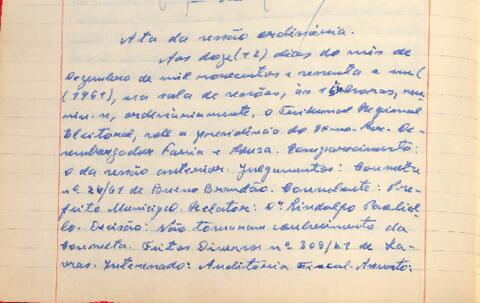 Ata da sessão ordinária.
Aos doze (12) dias do mês de
Dezembro de mil novecentos e sessenta e um (
(1961), na sala de sessões, às 16 horas, reu-
niu-se, ordinariamente, o Tribunal Regional
Eleitoral, sob a presidência do Exmo. Snr. De-
sembargador Faria e Sousa. Comparecimento:
o da sessão anterior. Julgamentos: Consulta
nº 26/61 de Bueno Brandão. Consulente: Pre-
feito Municipal. Relator: Dr Lindolfo Paoliel-
lo. Decisão: Não tomaram conhecimento da
Consulta. Feitos Diversos nº 309/61 de La-
vras. Interessado: Auditória Fiscal. Assunto: